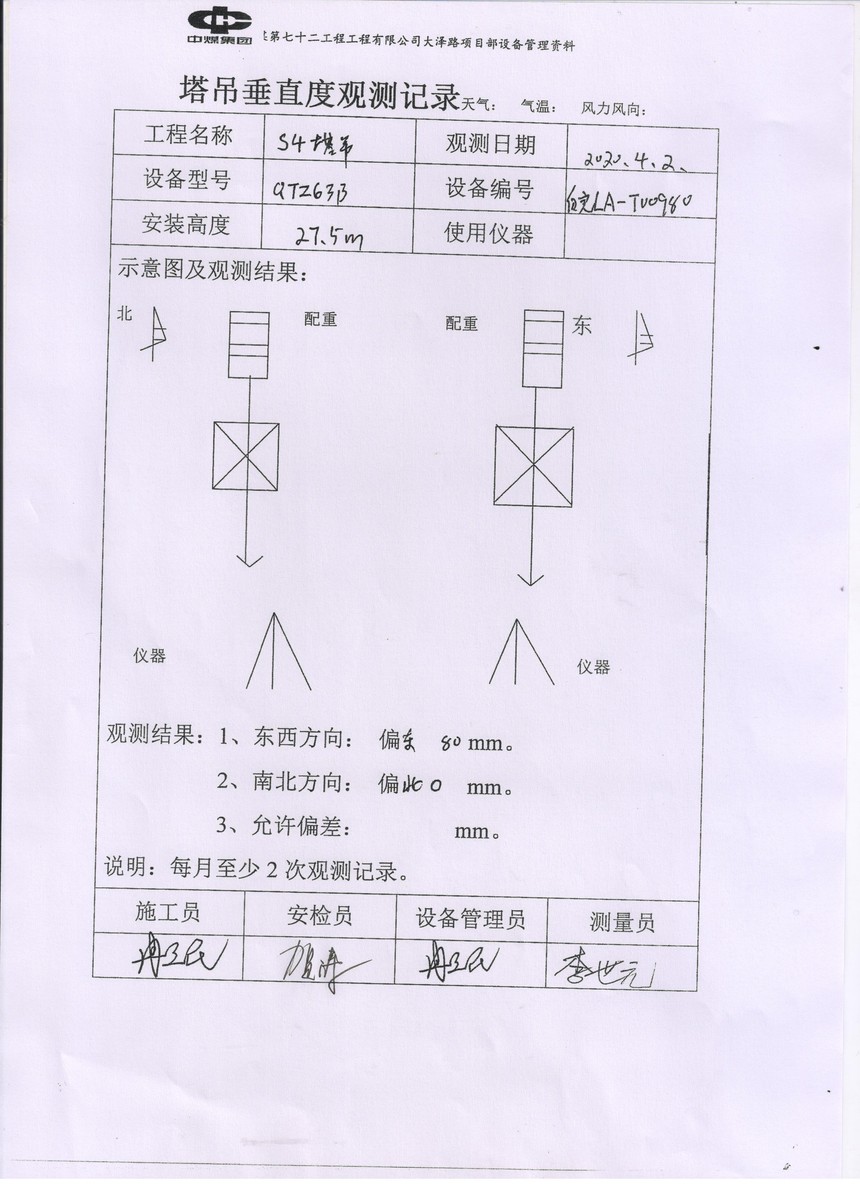 中煤集团
第七十二工程工程有限公司大泽路项目部设备管理资料
塔吊垂直度观测记录天气： 气温： 风力风向：
工程名称 S4塔吊 观测日期 2020.4.2.
设备型号 QTZ63B 设备编号 LA-TU0980
安装高度 27.5m 使用仪器
示意图及观测结果：
北 配重 配重 东
仪器 仪器
观测结果：1、东西方向： 偏东 80 mm。
2、南北方向： 偏北 0 mm。
3、允许偏差： mm。
说明：每月至少2次观测记录。
施工员 安检员 设备管理员 测量员
李世元